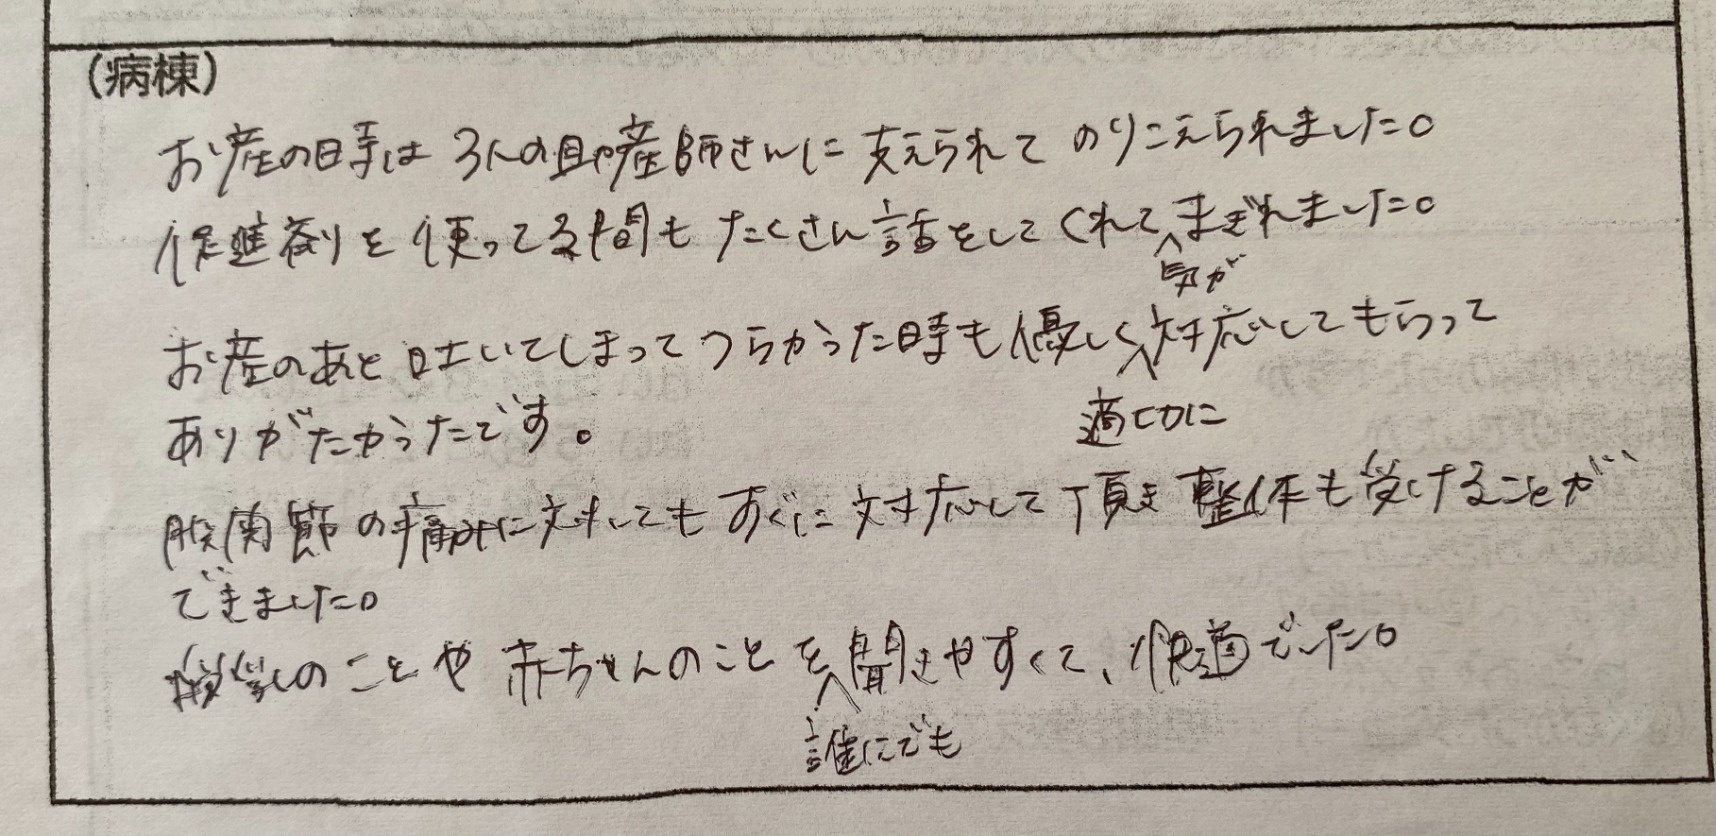 (病棟)
お産の時は3人の助産師さんに支えられてのりこえられました。
促進剤を使ってる間もたくさん話をしてくれて気がまぎれました。
お産のあと吐いてしまってつらかった時も優しく適切に対応してもらって
ありがたかったです。
股関節の痛みに対してもすぐに対応して頂き整体も受けることが
できました。
授乳のことや赤ちゃんのことを誰にでも聞きやすくて、快適でした。